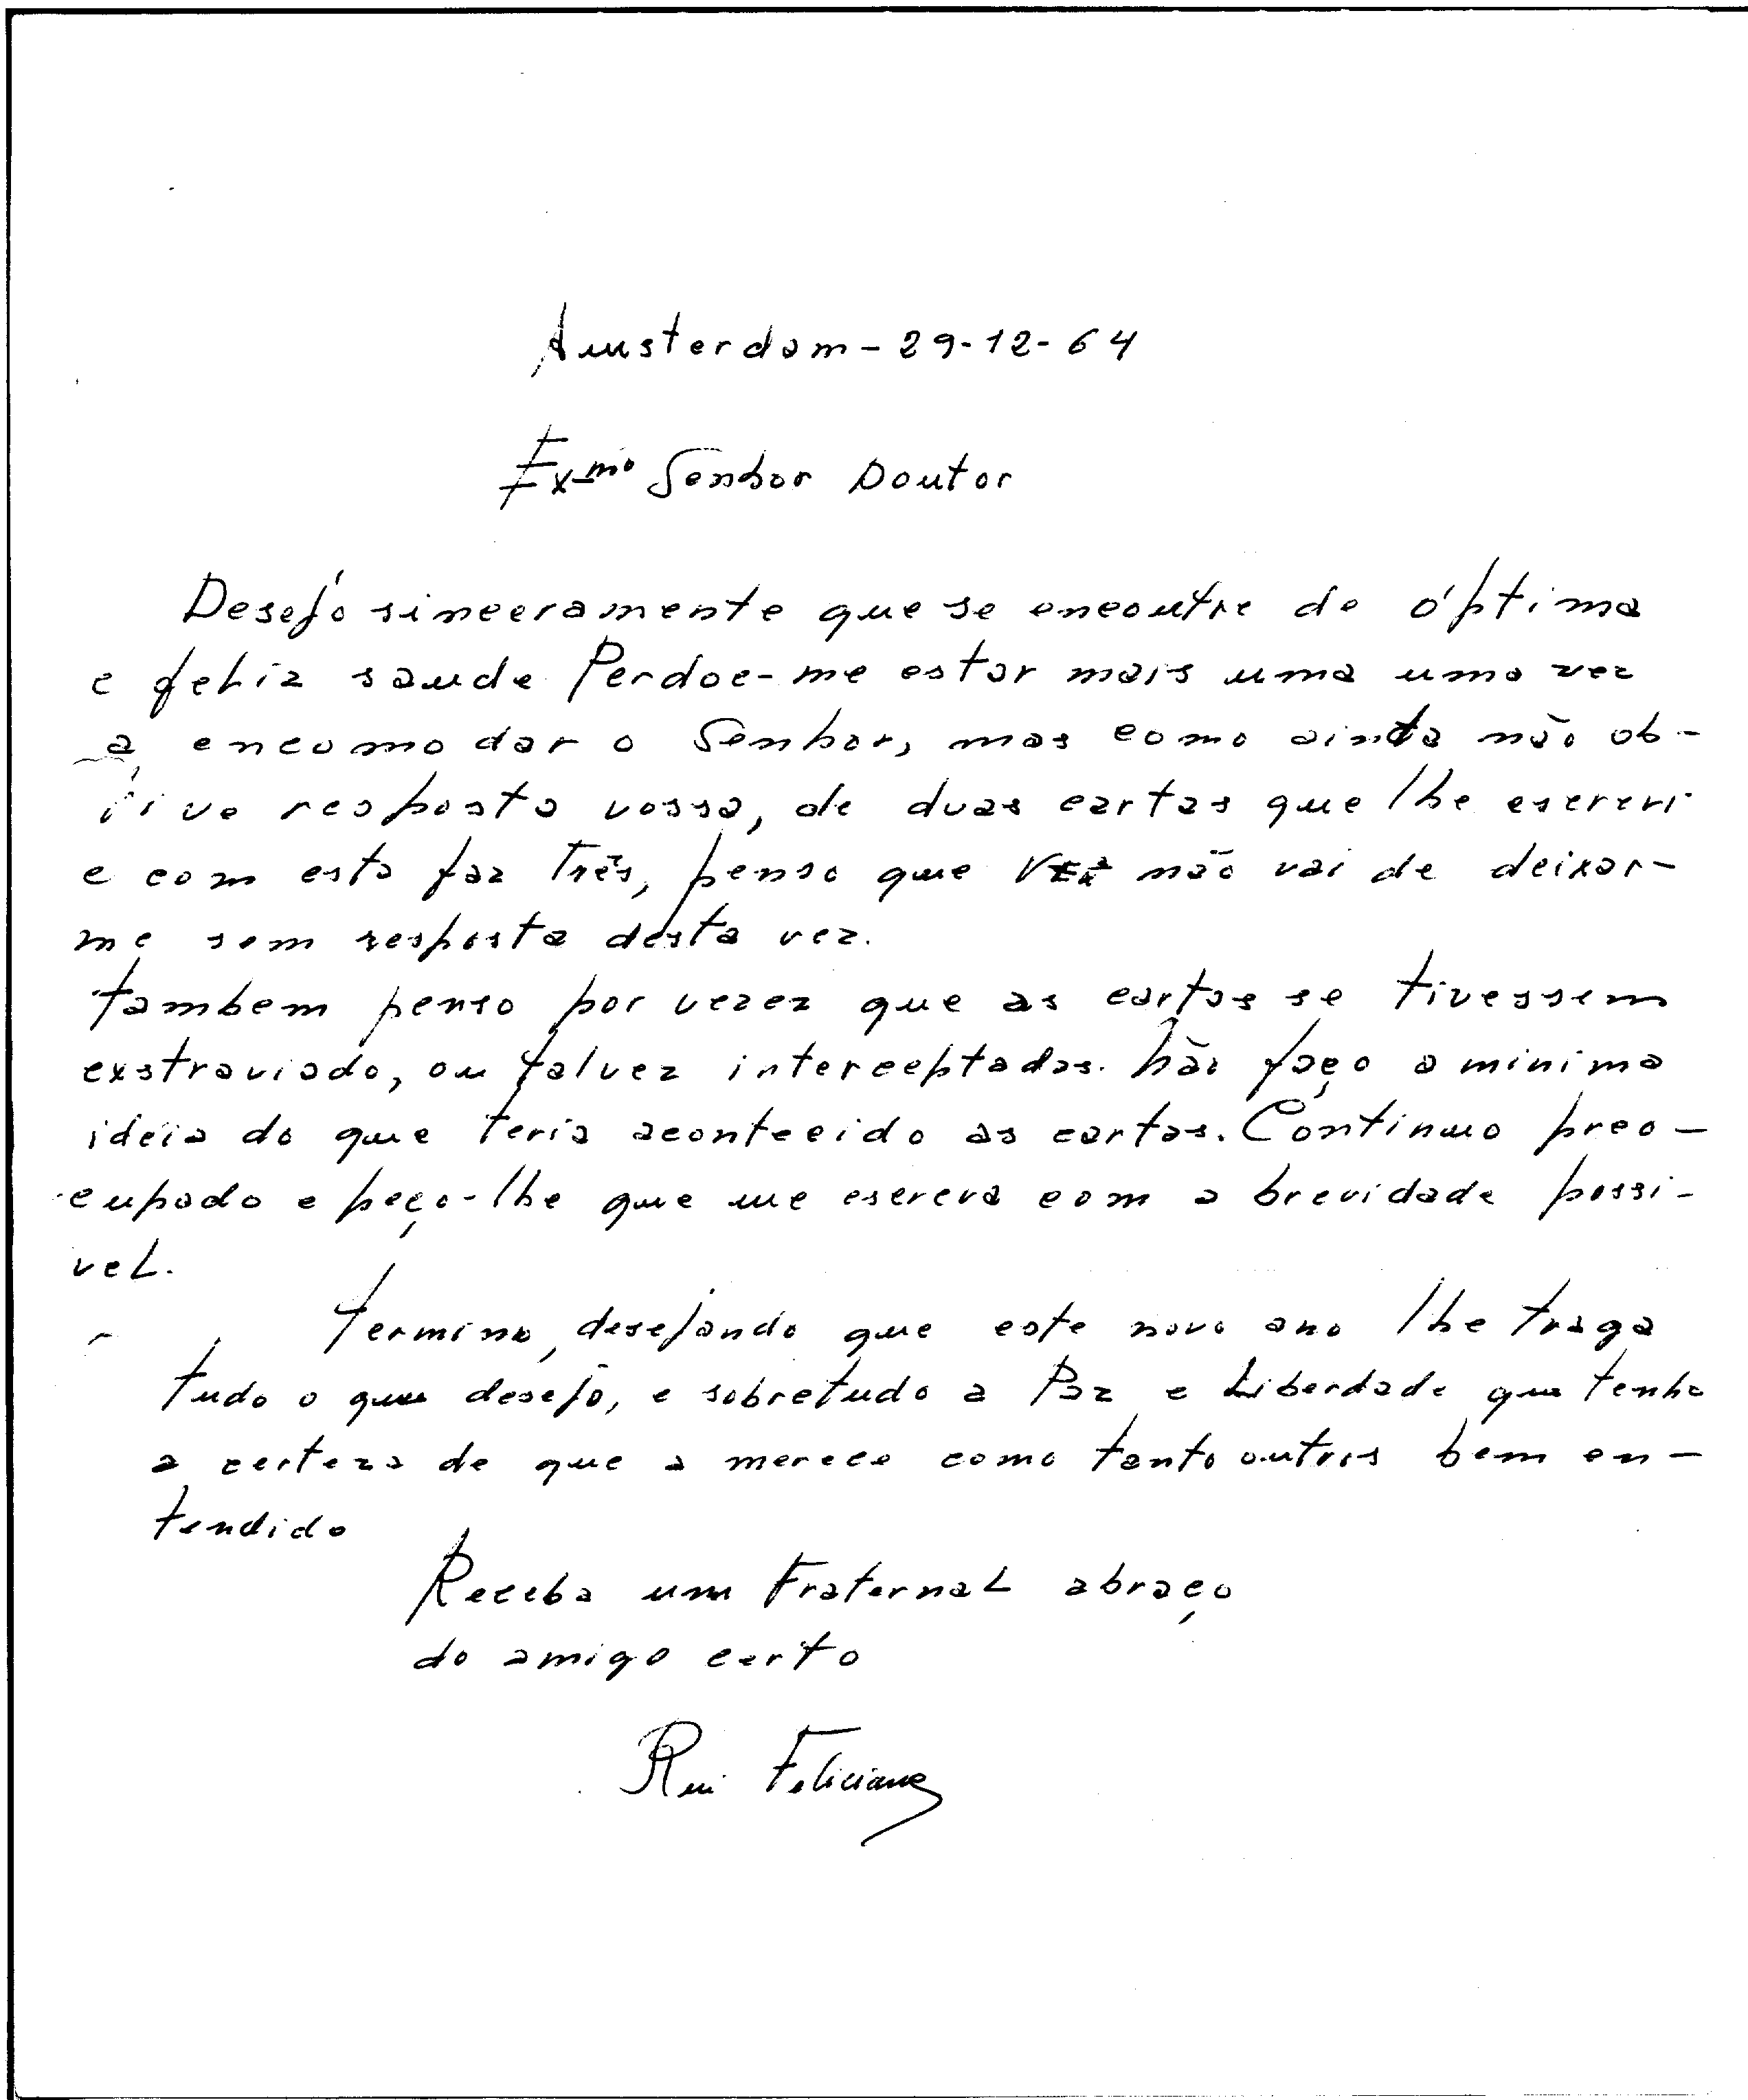 Amsterdam - 29-12-64
Exmo Senhor Doutor
Desejo sinceramente que se encontre de óptima
e feliz saude Perdoe-me estar mais uma uma vez
a encomodar o Senhor, mas como ainda não ob-
tive resposta vossa, de duas cartas que lhe escrevi
e com esta faz três, penso que não vai de deixar-
me sem resposta desta vez.
também penso por vezez que as cartas se tivessem
exstraviado, ou talvez interceptadas. não faço a minima
ideia do que teria acontecido as cartas. Continuo preo-
cupado e peço-lhe que me escreva com a brevidade possi-
vel.
termino, desejando que este novo ano lhe traga
tudo o que desejo, e sobretudo a Paz e Liberdade que tenho
a certeza de que a merece como tanto outros bem en-
tendido
Receba um Fraternal abraço
do amigo certo
Rui Feliciano